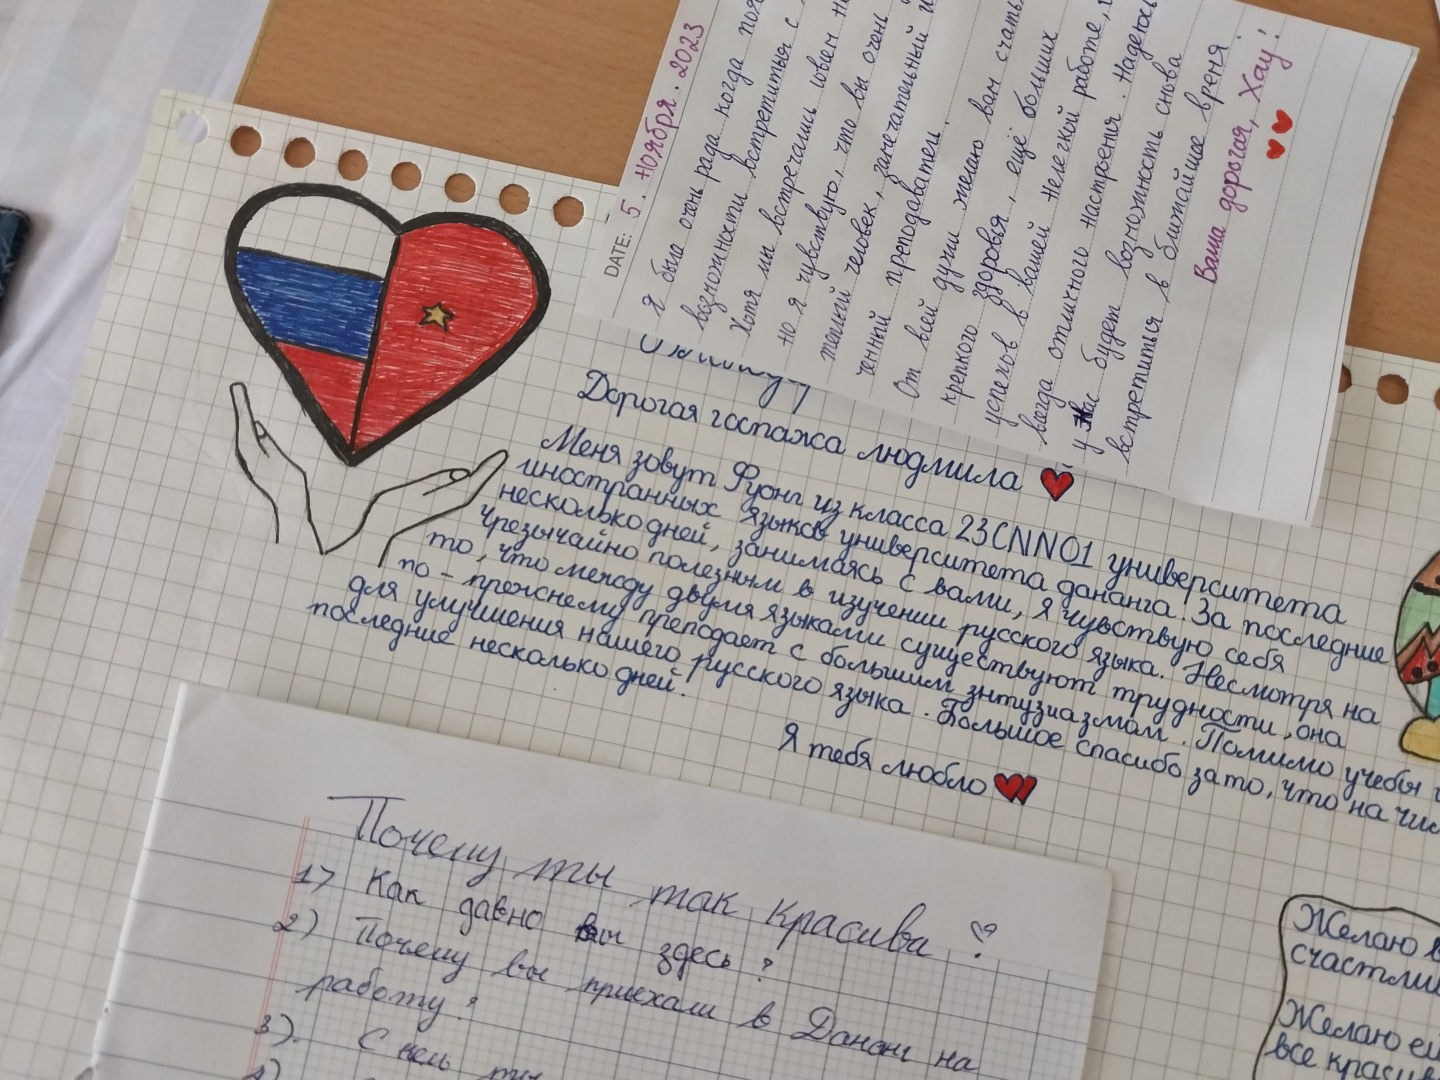 DATE: 5. ноября. 2023
Я была очень рада когда поя
возможности встретиться с
Хотя мы встречались совсем не
но я чувствую, что вы очень
теплый человек, замечательный и
ченный преподаватель.
От всей души желаю вам счастья
крепкого здоровья, ещё больших
успехов в вашей нелегкой работе,
всегда отличного настроения. Надеюсь
у нас будет возможность снова
встретиться в ближайшее время.
Ваша дорогая, Хау!
Дорогая госпажа людмила
Меня зовут Фуонг из класса 23CNNO1 университета
иностранных языков университета дананга. За последние
несколько дней, занимаясь с вами, я чувствую себя
чрезычайно полезным в изучении русского языка. Несмотря на
то, что между двумя языками существуют трудности, она
по-прежнему преподает с большим энтузиазмом. Помимо учебы
для улучшения нашего русского языка. Большое спасибо за то, что на
последние несколько дней.
Я тебя любло
Почему ты так красива?
1) Как давно вы здесь?
2) Почему вы приехали в Дананг на
работу?
3). С
Желаю в
счастли
Желаю ей
все краси